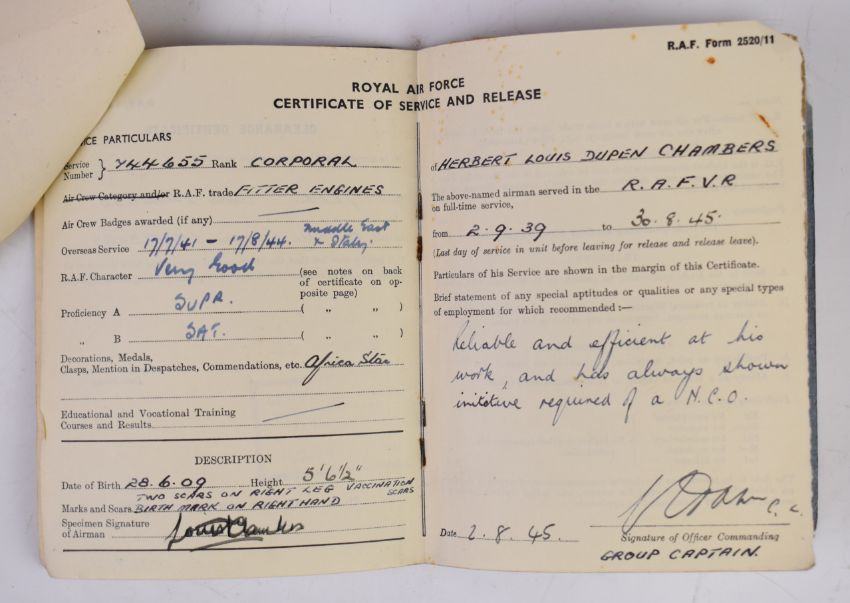 R.A.F. Form 2520/11
ROYAL AIR FORCE
CERTIFICATE OF SERVICE AND RELEASE
ICE PARTICULARS
Service Number } 744655 Rank CORPORAL
Air Crew Category and/or R.A.F. trade FITTER ENGINES
Air Crew Badges awarded (if any)
Overseas Service 17/7/41 – 17/8/44. Middle East & Italy.
R.A.F. Character Very Good (see notes on back
of certificate on op-
posite page)
Proficiency A SUPR. ( „ „ )
„ B SAT. ( „ „ )
Decorations, Medals,
Clasps, Mention in Despatches, Commendations, etc. Africa Star
Educational and Vocational Training
Courses and Results
DESCRIPTION
Date of Birth 28.6.09 Height 5' 6½"
TWO SCARS ON RIGHT LEG VACCINATION SCARS
Marks and Scars BIRTH MARK ON RIGHT HAND
Specimen Signature
of Airman Louis Chambers
of HERBERT LOUIS DUPEN CHAMBERS
The above-named airman served in the R.A.F.V.R
on full-time service,
from 2.9.39 to 30.8.45.
(Last day of service in unit before leaving for release and release leave).
Particulars of his Service are shown in the margin of this Certificate.
Brief statement of any special aptitudes or qualities or any special types
of employment for which recommended :—
Reliable and efficient at his
work, and has always shown
initative required of a N.C.O.
Date 2.8.45.
Signature of Officer Commanding
GROUP CAPTAIN.